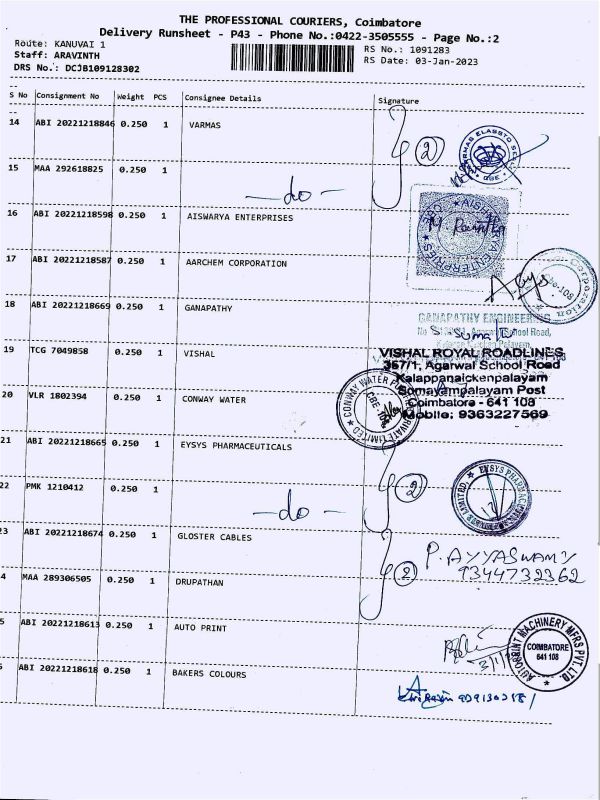 THE PROFESSIONAL COURIERS, Coimbatore
Delivery Runsheet - P43 - Phone No.:0422-3505555 - Page No.:2
Route: KANUVAI 1
Staff: ARAVINTH
DRS No.: DCJB109128302
RS No.: 1091283
RS Date: 03-Jan-2023
S No Consignment No Weight PCS Consignee Details Signature
14 ABI 20221218846 0.250 1 VARMAS
2
15 MAA 292618825 0.250 1
-do-
16 ABI 20221218598 0.250 1 AISWARYA ENTERPRISES
17 ABI 20221218587 0.250 1 AARCHEM CORPORATION
18 ABI 20221218669 0.250 1 GANAPATHY
GANAPATHY ENGINEERING
19 TCG 7049858 0.250 1 VISHAL
VISHAL ROYAL ROADLINES
367/1, Agarwal School Road
Kalappanaickenpalayam
Somayampalayam Post
Coimbatore - 641 108
Mobile: 9363227569
20 VLR 1802394 0.250 1 CONWAY WATER
21 ABI 20221218665 0.250 1 EYSYS PHARMACEUTICALS
2
22 PMK 1210412 0.250 1
-do-
3 ABI 20221218674 0.250 1 GLOSTER CABLES
P. AYYASWAMY
9344732362
4 MAA 289306505 0.250 1 DRUPATHAN
2
5 ABI 20221218613 0.250 1 AUTO PRINT
AUTOPRINT MACHINERY MFRS PVT. LTD.
COIMBATORE
641 108
ABI 20221218618 0.250 1 BAKERS COLOURS